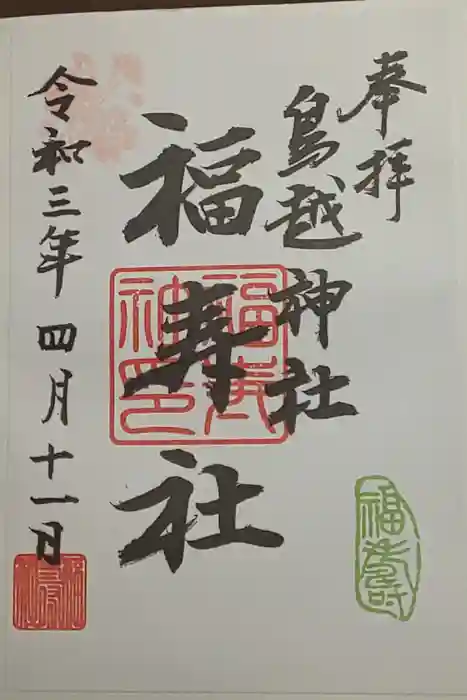 奉拝
鳥越神社
福寿社
令和三年四月十一日
福壽
神印
福壽